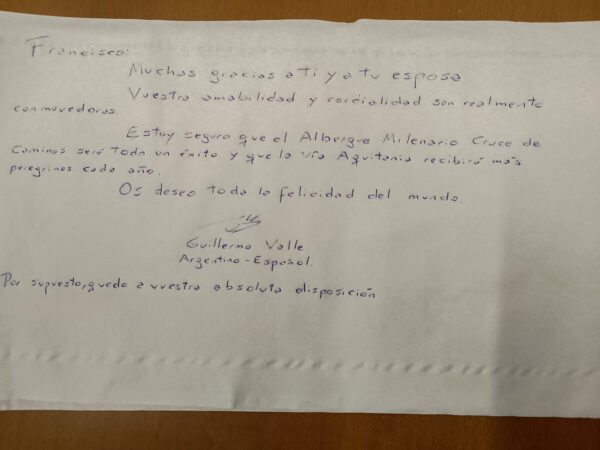 Francisco:
Muchas gracias a ti y a tu esposa
Vuestra amabilidad y cordialidad son realmente
conmovedoras.
Estoy seguro que el Albergue Milenario Cruce de
Caminos será todo un éxito y que la Vía Aquitania recibirá más
peregrinos cada año.
Os deseo toda la felicidad del mundo.
Guillermo Valle
Argentino-Español.
Por supuesto, quedo a vuestra absoluta disposición